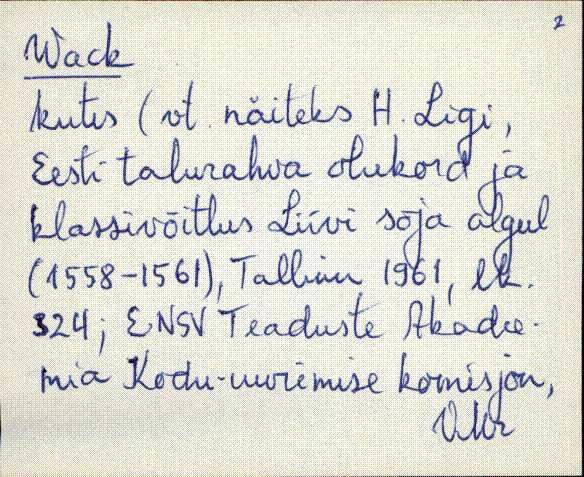 2
Wack
kutes (vt. näiteks H. Ligi,
Eesti talurahva olukord ja
klassivõitlus Liivi sõja algul
(1558-1561), Tallinn 1961, lk.
324; ENSV Teaduste Akadee-
mia Kodu-uurimise komisjon,